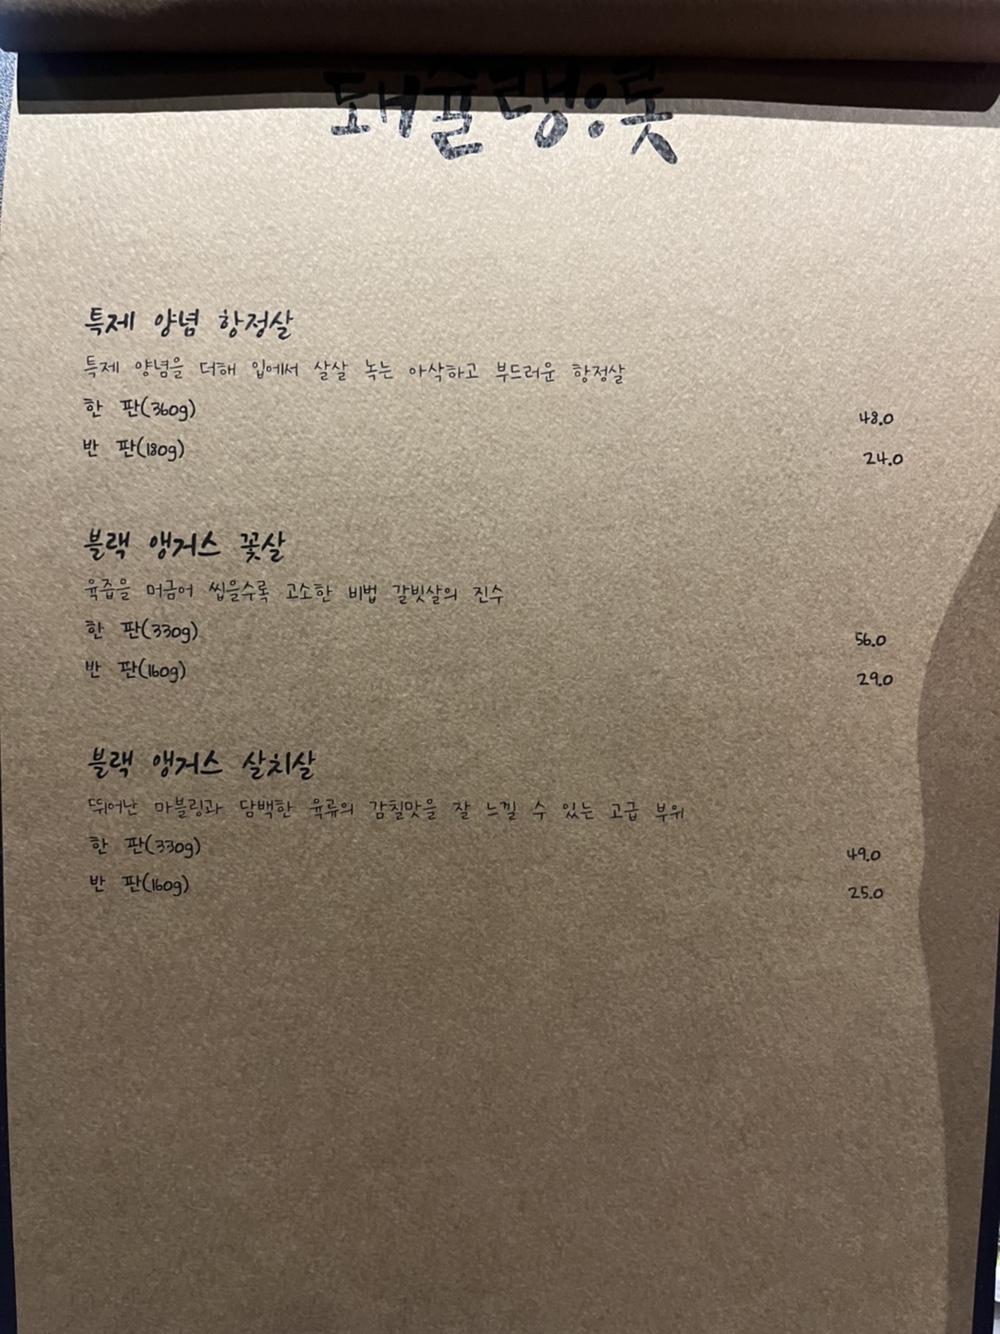 특제 양념 항정살
특제 양념을 더해 입에서 살살 녹는 아삭하고 부드러운 항정살
한 판(360g) 48.0
반 판(180g) 24.0
블랙 앵거스 꽃살
육즙을 머금어 씹을수록 고소한 비법 갈빗살의 진수
한 판(330g) 56.0
반 판(160g) 29.0
블랙 앵거스 살치살
뛰어난 마블링과 담백한 육류의 감칠맛을 잘 느낄 수 있는 고급 부위
한 판(330g) 49.0
반 판(160g) 25.0